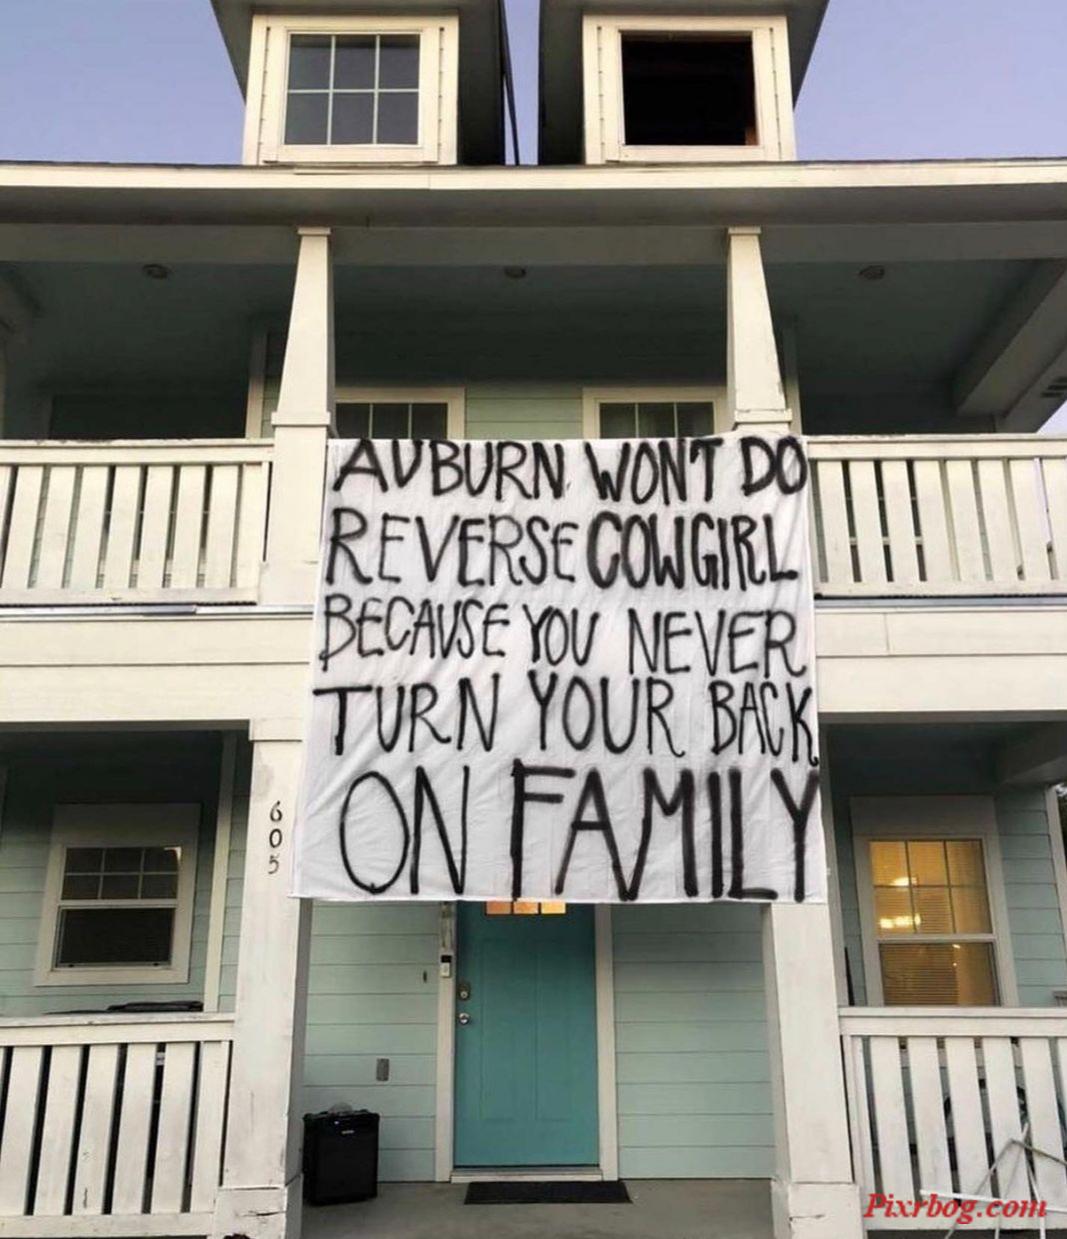 AUBURN WONT DO
REVERSE COWGIRL
BECAUSE YOU NEVER
TURN YOUR BACK
ON FAMILY
605
Pixrbog.com